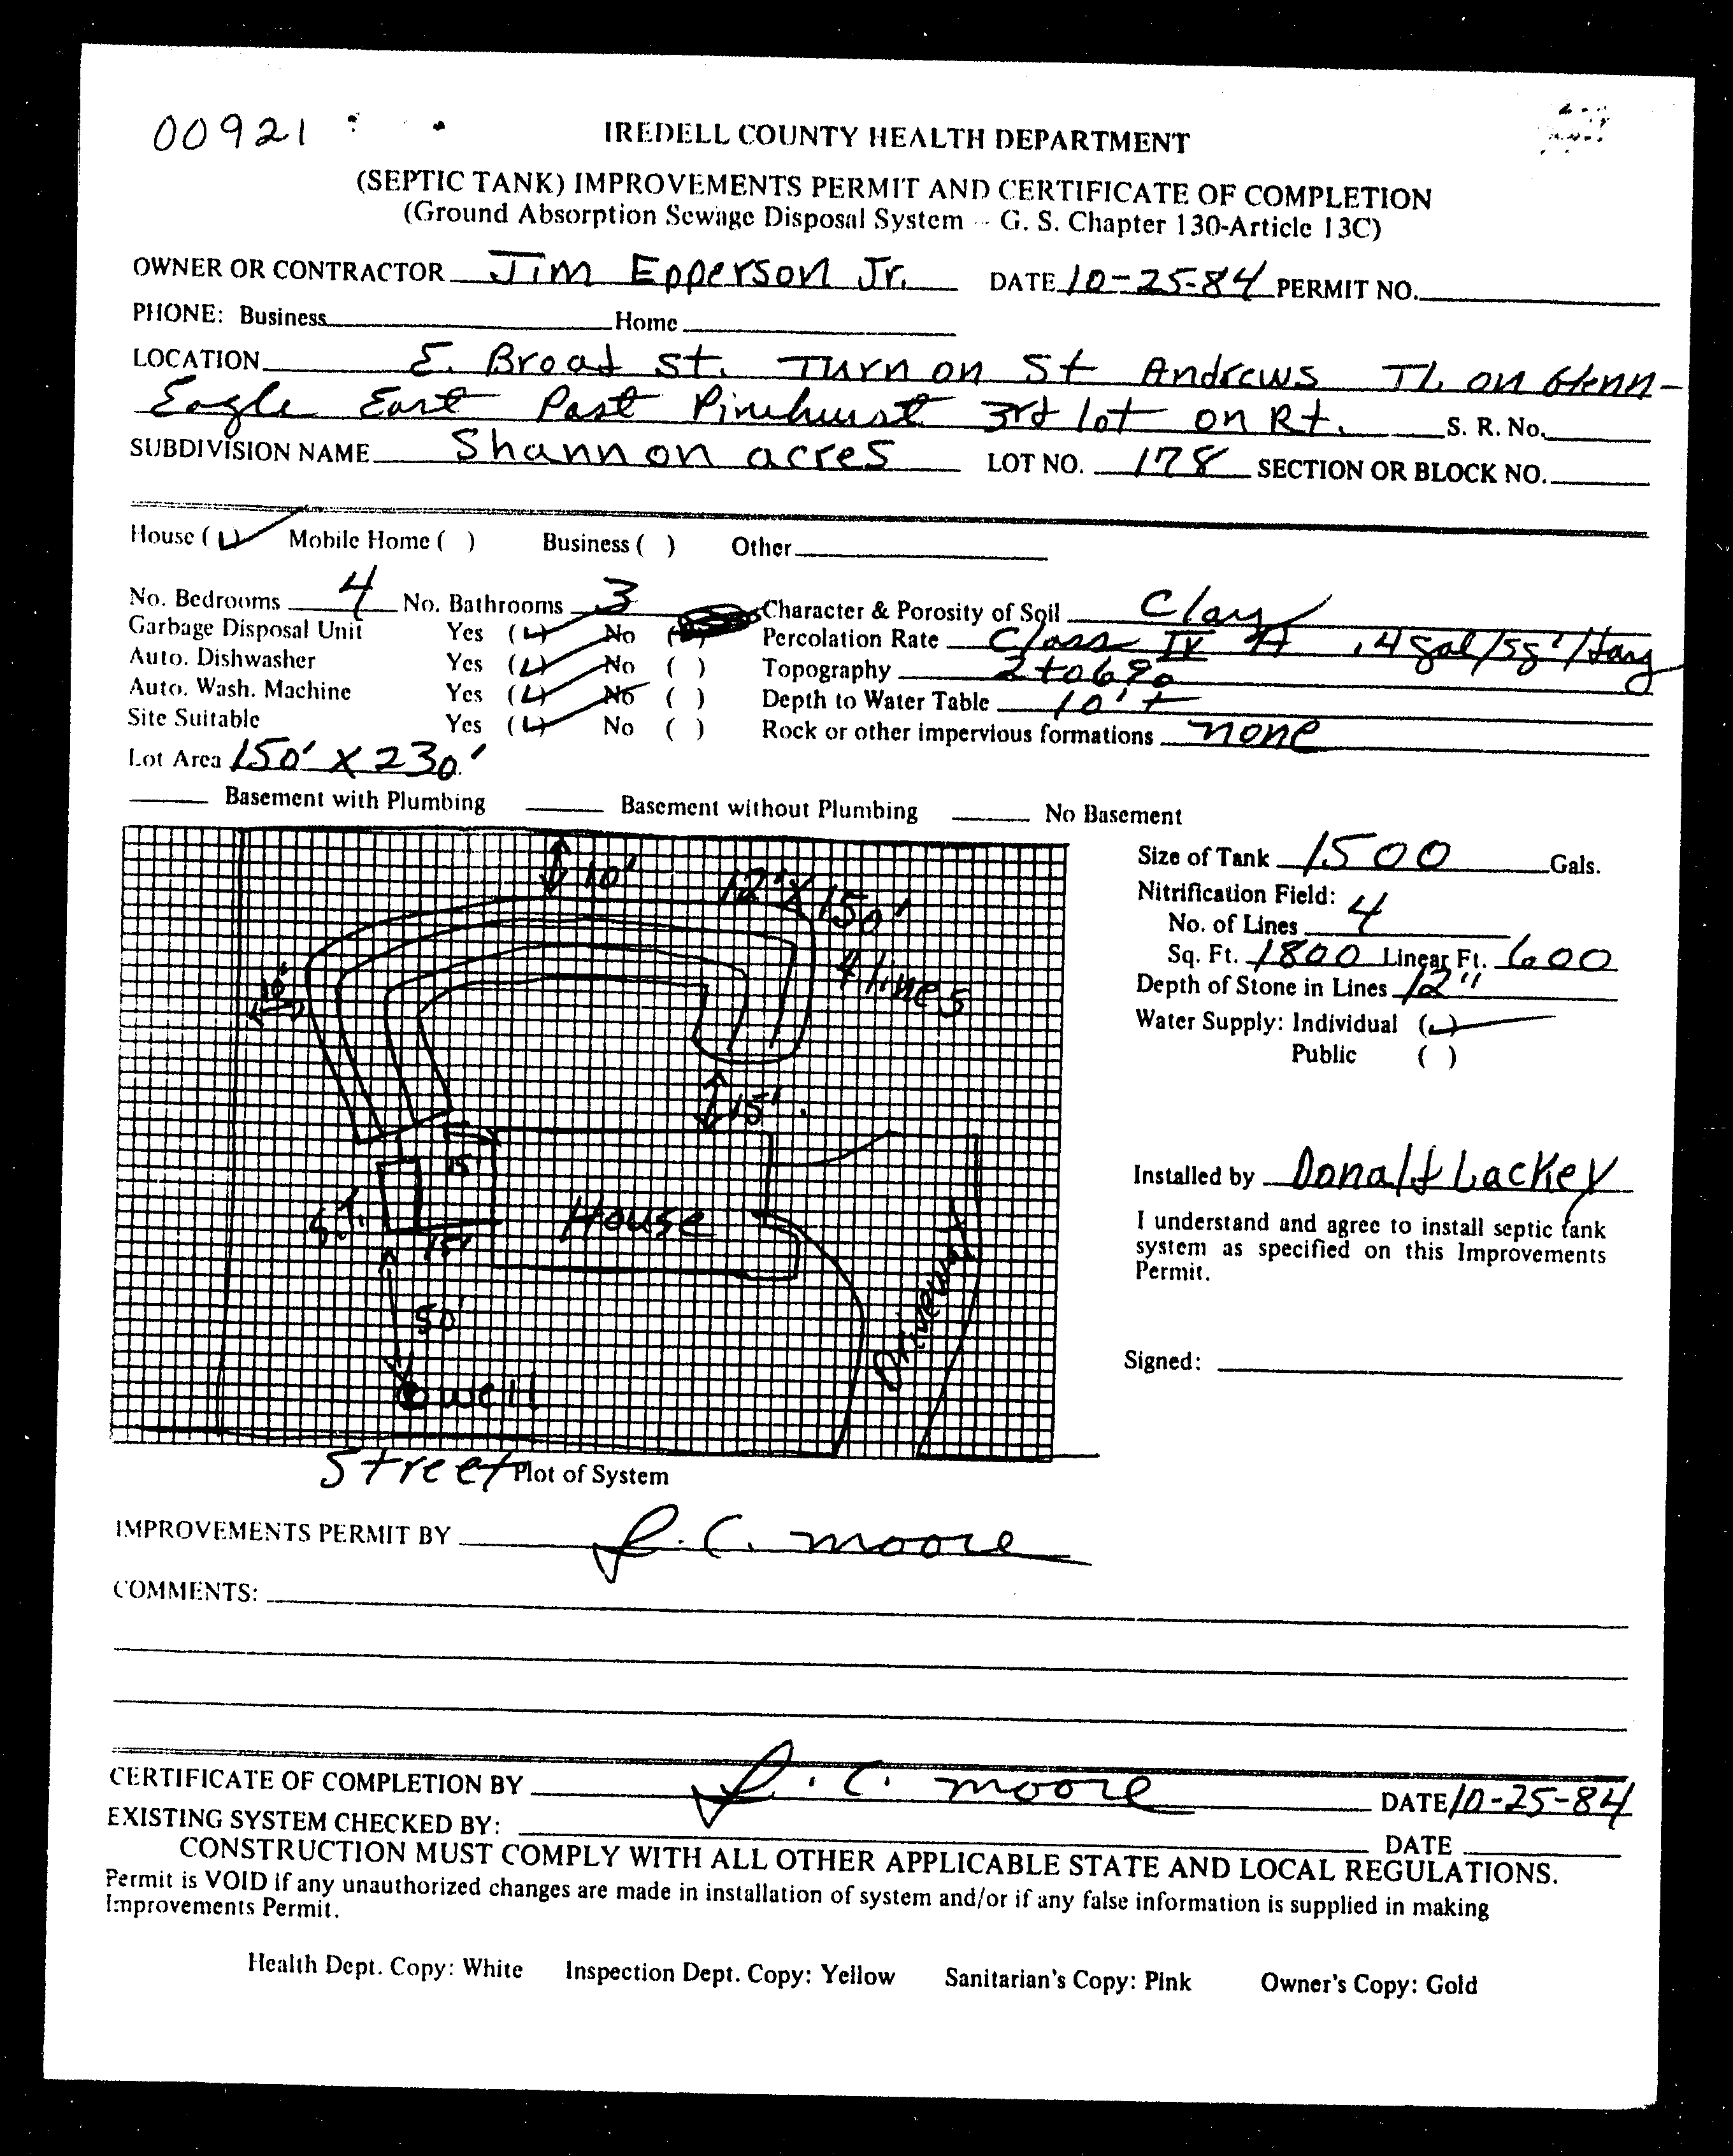 00921
IREDELL COUNTY HEALTH DEPARTMENT
(SEPTIC TANK) IMPROVEMENTS PERMIT AND CERTIFICATE OF COMPLETION
(Ground Absorption Sewage Disposal System -- G. S. Chapter 130-Article 13C)
OWNER OR CONTRACTOR Jim Epperson Jr. DATE 10-25-84 PERMIT NO.
PHONE: Business Home
LOCATION E. Broad St. Turn on St Andrews TL on Glenn-
Eagle East Past Pinehurst 3rd lot on Rt. S. R. No.
SUBDIVISION NAME Shannon acres LOT NO. 178 SECTION OR BLOCK NO.
House ( ) Mobile Home ( ) Business ( ) Other
No. Bedrooms 4 No. Bathrooms 3 Character & Porosity of Soil Clay
Garbage Disposal Unit Yes ( ) No ( ) Percolation Rate Class IV A .4 gal/sq'/day
Auto. Dishwasher Yes ( ) No ( ) Topography 2 to 6%
Auto. Wash. Machine Yes ( ) No ( ) Depth to Water Table 10'+
Site Suitable Yes ( ) No ( ) Rock or other impervious formations none
Lot Area 150' X 230'
Basement with Plumbing Basement without Plumbing No Basement
10'
12" X 150'
4 lines
10'
15'
15'
S.T.
15'
House
50'
Well
Driveway
Street
Plot of System
Size of Tank 1500 Gals.
Nitrification Field:
No. of Lines 4
Sq. Ft. 1800 Linear Ft. 600
Depth of Stone in Lines 12"
Water Supply: Individual ( )
Public ( )
Installed by Donald Lackey
I understand and agree to install septic tank
system as specified on this Improvements
Permit.
Signed:
IMPROVEMENTS PERMIT BY J. C. Moore
COMMENTS:
CERTIFICATE OF COMPLETION BY J. C. Moore DATE 10-25-84
EXISTING SYSTEM CHECKED BY: DATE
CONSTRUCTION MUST COMPLY WITH ALL OTHER APPLICABLE STATE AND LOCAL REGULATIONS.
Permit is VOID if any unauthorized changes are made in installation of system and/or if any false information is supplied in making
Improvements Permit.
Health Dept. Copy: White Inspection Dept. Copy: Yellow Sanitarian's Copy: Pink Owner's Copy: Gold